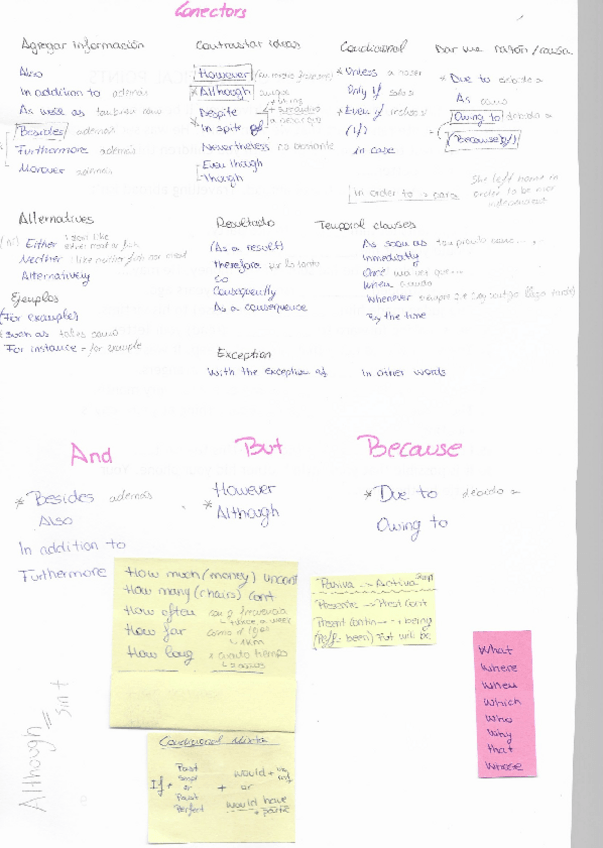 Conectors
Agregar información
Also
In addition to además
As well as también como
Besides además
Furthermore además
Morover además
Contrastar ideas
However
Although aunque
Despite
In spite of
Nevertheless no obstante
Even though
Though
Condicional
Unless a menos
Only if solo si
Even if incluso si
(If)
In case
Dar una razón/causa
Due to debido a
As como
Owing to debido a
(Because of)
In order to → para
She left home in
order to be more
independent
Alternatives
Either
Neither I like neither fish nor meat
Alternatively
Ejemplos
(For example)
Such as tales como
For instance = for example
Resultado
(As a result)
therefore por lo tanto
So
Consequently
As a consequence
Temporal clauses
As soon as tan pronto como...
Inmediatly
Once una vez que...
When cuando
Whenever
By the time
Exception
With the exception of
In other words
And
* Besides además
Also
In addition to
Furthermore
But
However
* Although
Because
* Due to debido a
Owing to
How much (money) uncont
How many (chairs) cont
How often con q frecuencia
↳ twice a week
How far como d lejos
↳ 1km
How long x cuanto tiempo
Pasiva → Activa
Presente → Prest cont
Present contin → + being
Fut will be
What
Where
When
Which
Who
Why
that
Whose
Although =
Conditional Mixta
If +
Past
Simpl
or
Past
Perfect
+
would +
or
would have